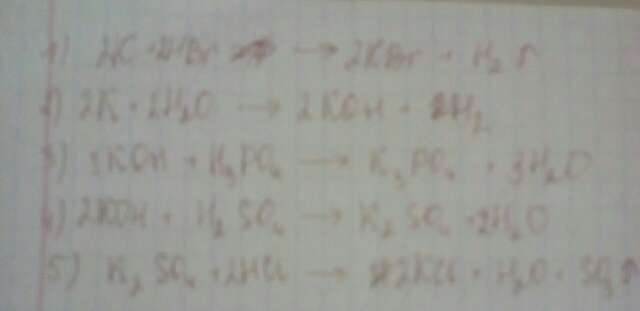 1) 2K + 2HBr → 2KBr + H₂ ↑
2) 2K + 2H₂O → 2KOH + H₂
3) 3KOH + H₃PO₄ → K₃PO₄ + 3H₂O
4) 2KOH + H₂SO₄ → K₂SO₄ + 2H₂O
5) K₂SO₄ + 2HCl → 2KCl + H₂O + SO₃↑